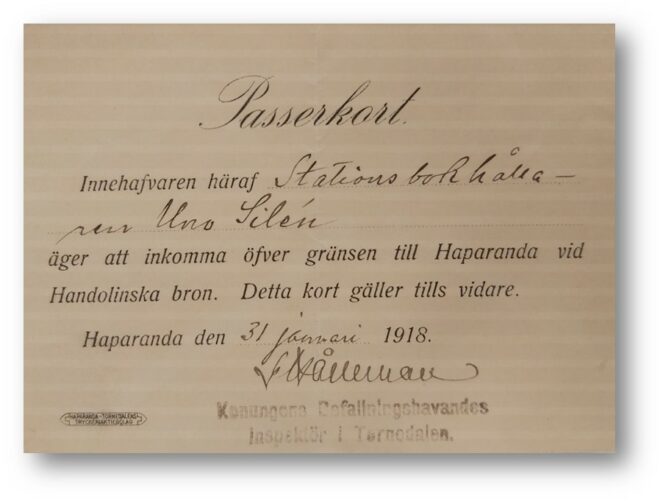 Passerkort.
Innehafvaren häraf Stationsbokhålla-
ren Uno Silén
äger att inkomma öfver gränsen till Haparanda vid
Handolinska bron. Detta kort gäller tills vidare.
Haparanda den 31 januari 1918.
Konungens Befallningshavandes
Inspektör i Tornedalen.
HAPARANDA-TORNEDALENS
TRYCKERIAKTIEBOLAG